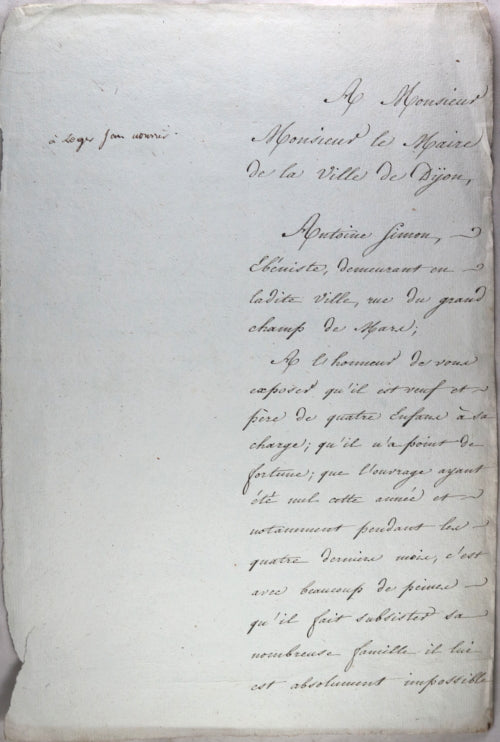 A Monsieur
Monsieur le Maire
de la Ville de Dijon,
à loger
Antoine Simon,
Ebéniste, demeurant en
ladite Ville, rue du grand
champ de Mars;
A l'honneur de vous
exposer qu'il est veuf et
père de quatre Enfans à sa
charge; qu'il n'a point de
fortune; que l'ouvrage ayant
été nul cette année et
notamment pendant les
quatre derniers mois, c'est
avec beaucoup de peines
qu'il fait subsister sa
nombreuse famille il lui
est absolument impossible